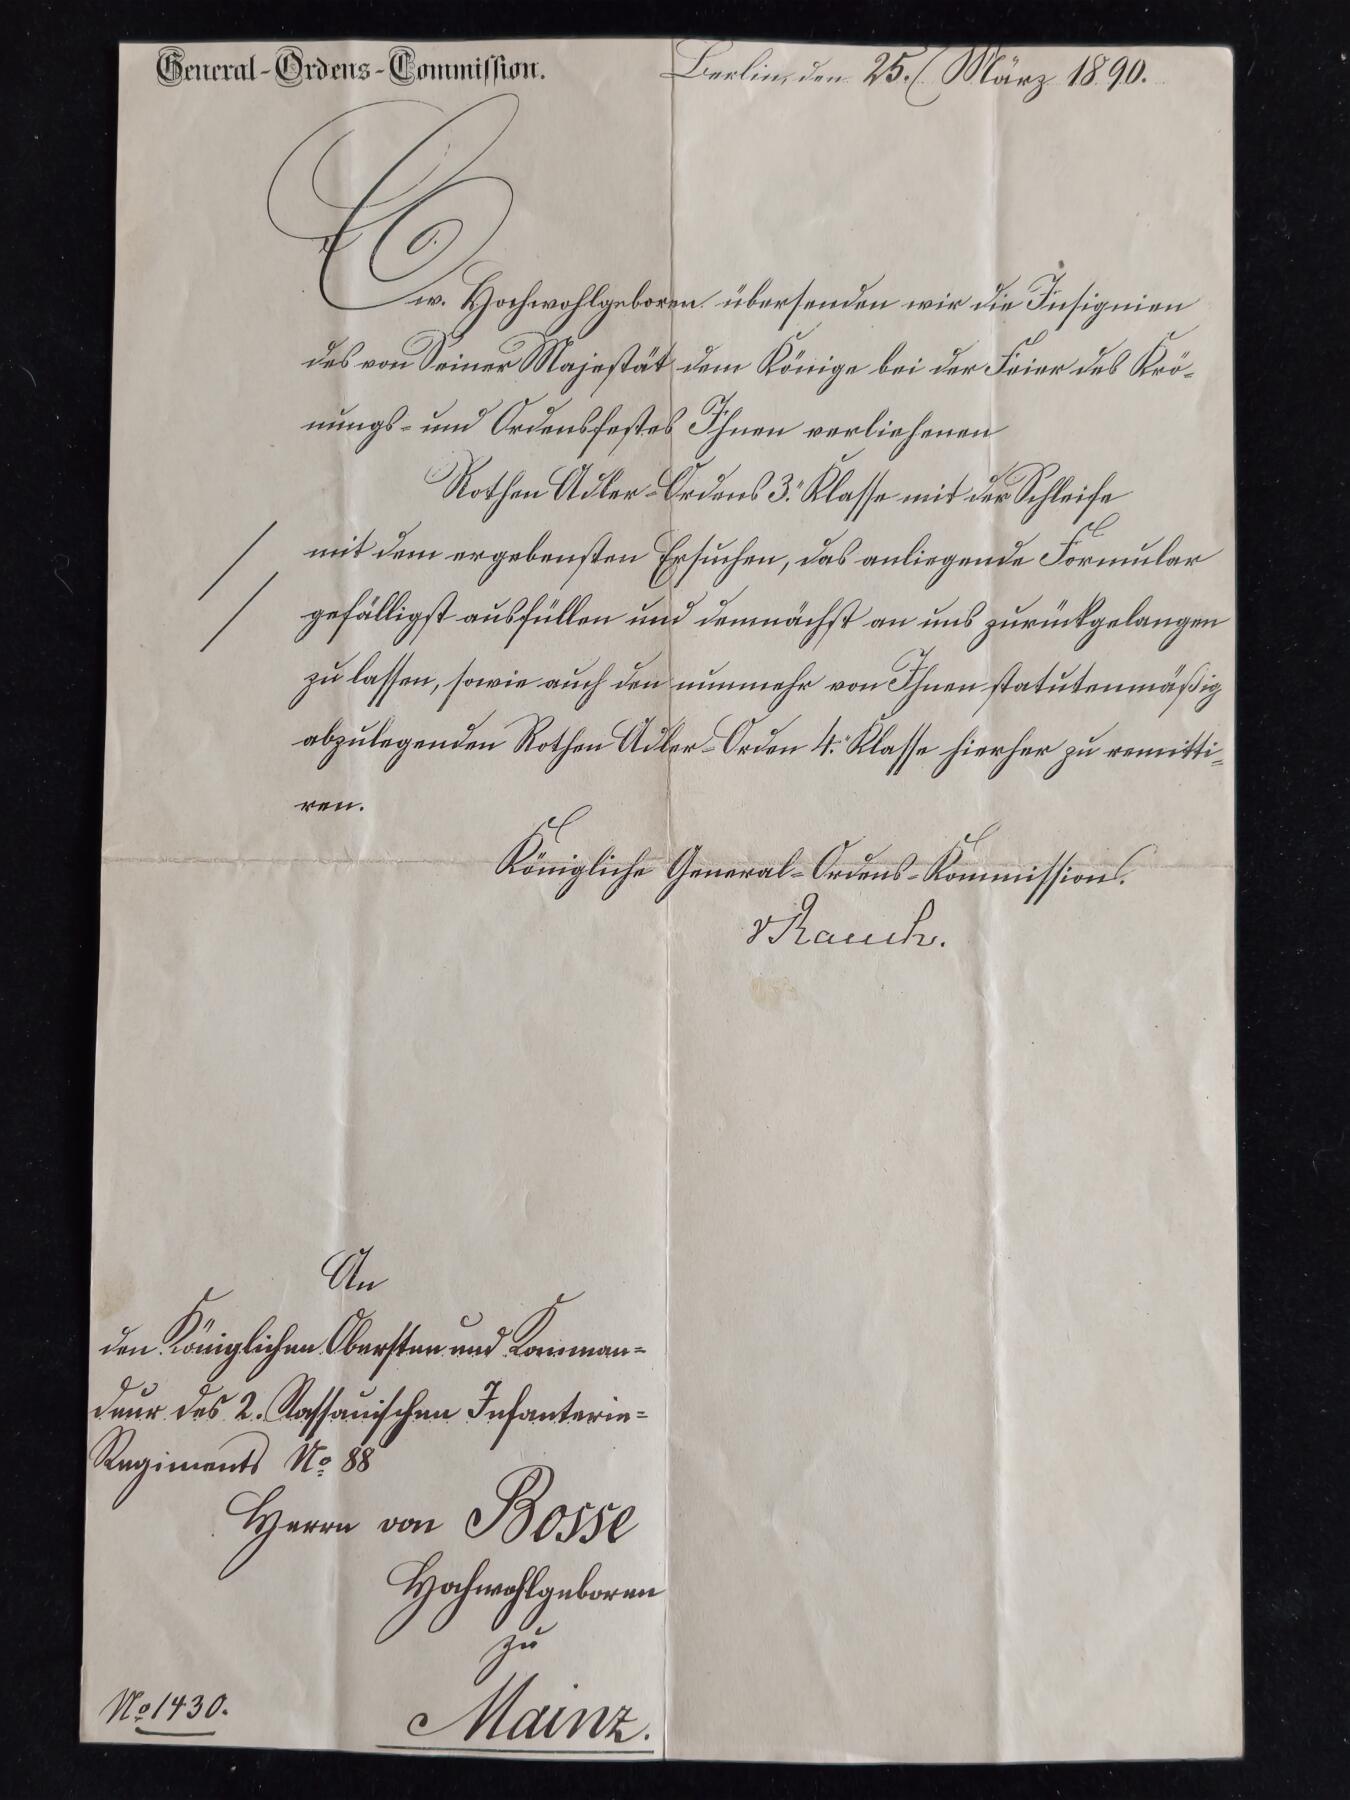 General-Ordens-Commission.
Berlin, den 25. März 1890.
Ew. Hochwohlgeboren übersenden wir die Insignien
des von Seiner Majestät dem Könige bei der Feier des Krö-
nungs- und Ordensfestes Ihnen verliehenen
Rothen Adler-Ordens 3. Klasse mit der Schleife
mit dem ergebensten Ersuchen, das anliegende Formular
gefälligst ausfüllen und demnächst an uns zurückgelangen
zu lassen, sowie auch den nunmehr von Ihnen statutenmäßig
abzulegenden Rothen Adler-Orden 4. Klasse hierher zu remitti-
ren.
Königliche General-Ordens-Kommission.
vRauch.
An
den Königlichen Obersten und Komman-
deur des 2. Nassauischen Infanterie-
Regiments No 88
Herrn von Bosse
Hochwohlgeboren
zu
Mainz.
No 1430.